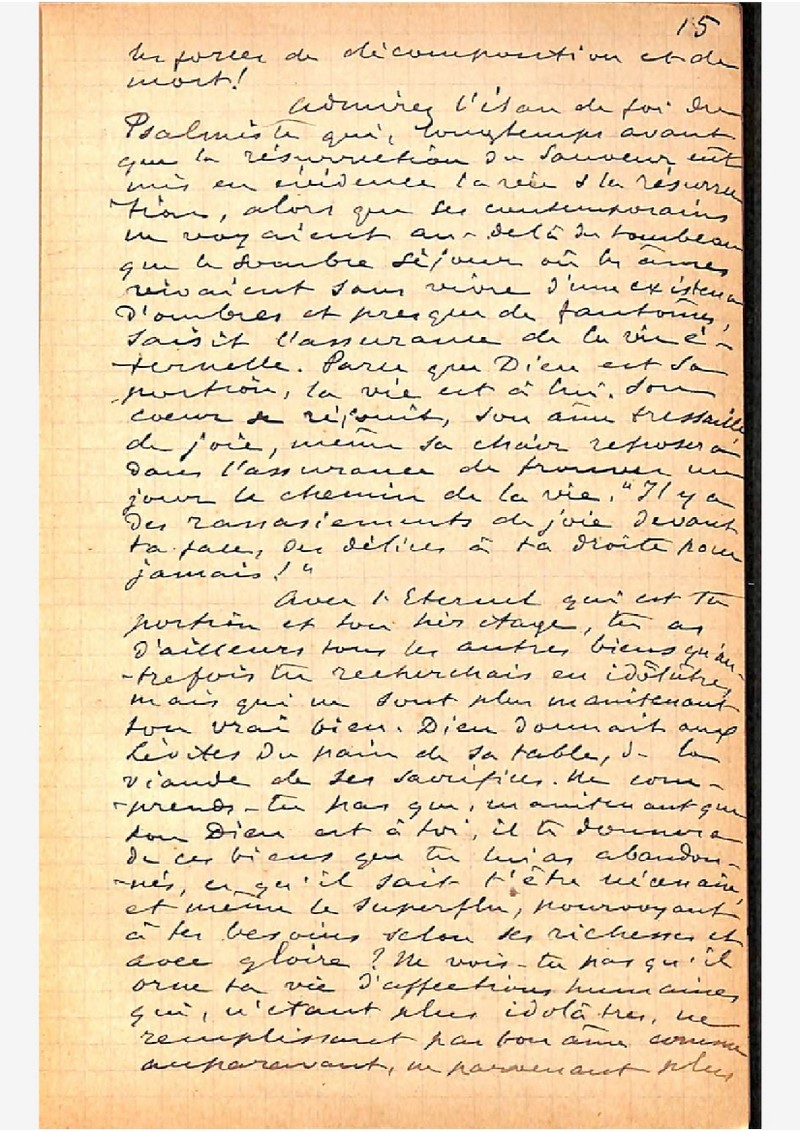 15
les forces de décomposition et de
mort!
Admirez l'élan de foi du
Psalmiste qui, longtemps avant
que la résurrection du Sauveur eût
mis en évidence la vie & la résurrec-
-tion, alors que ses contemporains
ne voyaient au-delà du tombeau
que le sombre séjour où les âmes
vivaient sans vivre d'une existence
d'ombres et presque de fantômes,
saisit l'assurance de la vie é-
-ternelle. Parce que Dieu est sa
portion, la vie est à lui. Son
coeur se réjouit, son âme tressaille
de joie, même sa chair reposera
dans l'assurance de trouver un
jour le chemin de la vie. "Il y a
des rassasiements de joie devant
ta face, des délices à ta droite pour
jamais!"
Avec l'Eternel qui est ta
portion et ton héritage, tu as
d'ailleurs tous les autres biens qu'au-
-trefois tu recherchais en idôlâtre,
mais qui ne sont plus maintenant
ton vrai bien. Dieu donnait aux
Lévites du pain de sa table, de la
viande de ses sacrifices. Ne com-
-prends-tu pas que, maintenant que
ton Dieu est à toi, il te donnera
de ces biens que tu lui as abandon-
-nés, ce qu'il sait t'être nécessaire,
et même le superflu, pourvoyant
à tes besoins selon ses richesses et
avec gloire? Ne vois-tu pas qu'il
orne ta vie d'affections humaines
qui, n'étant plus idolâtres, ne
remplissant pas ton âme comme
auparavant, ne parvenant plus